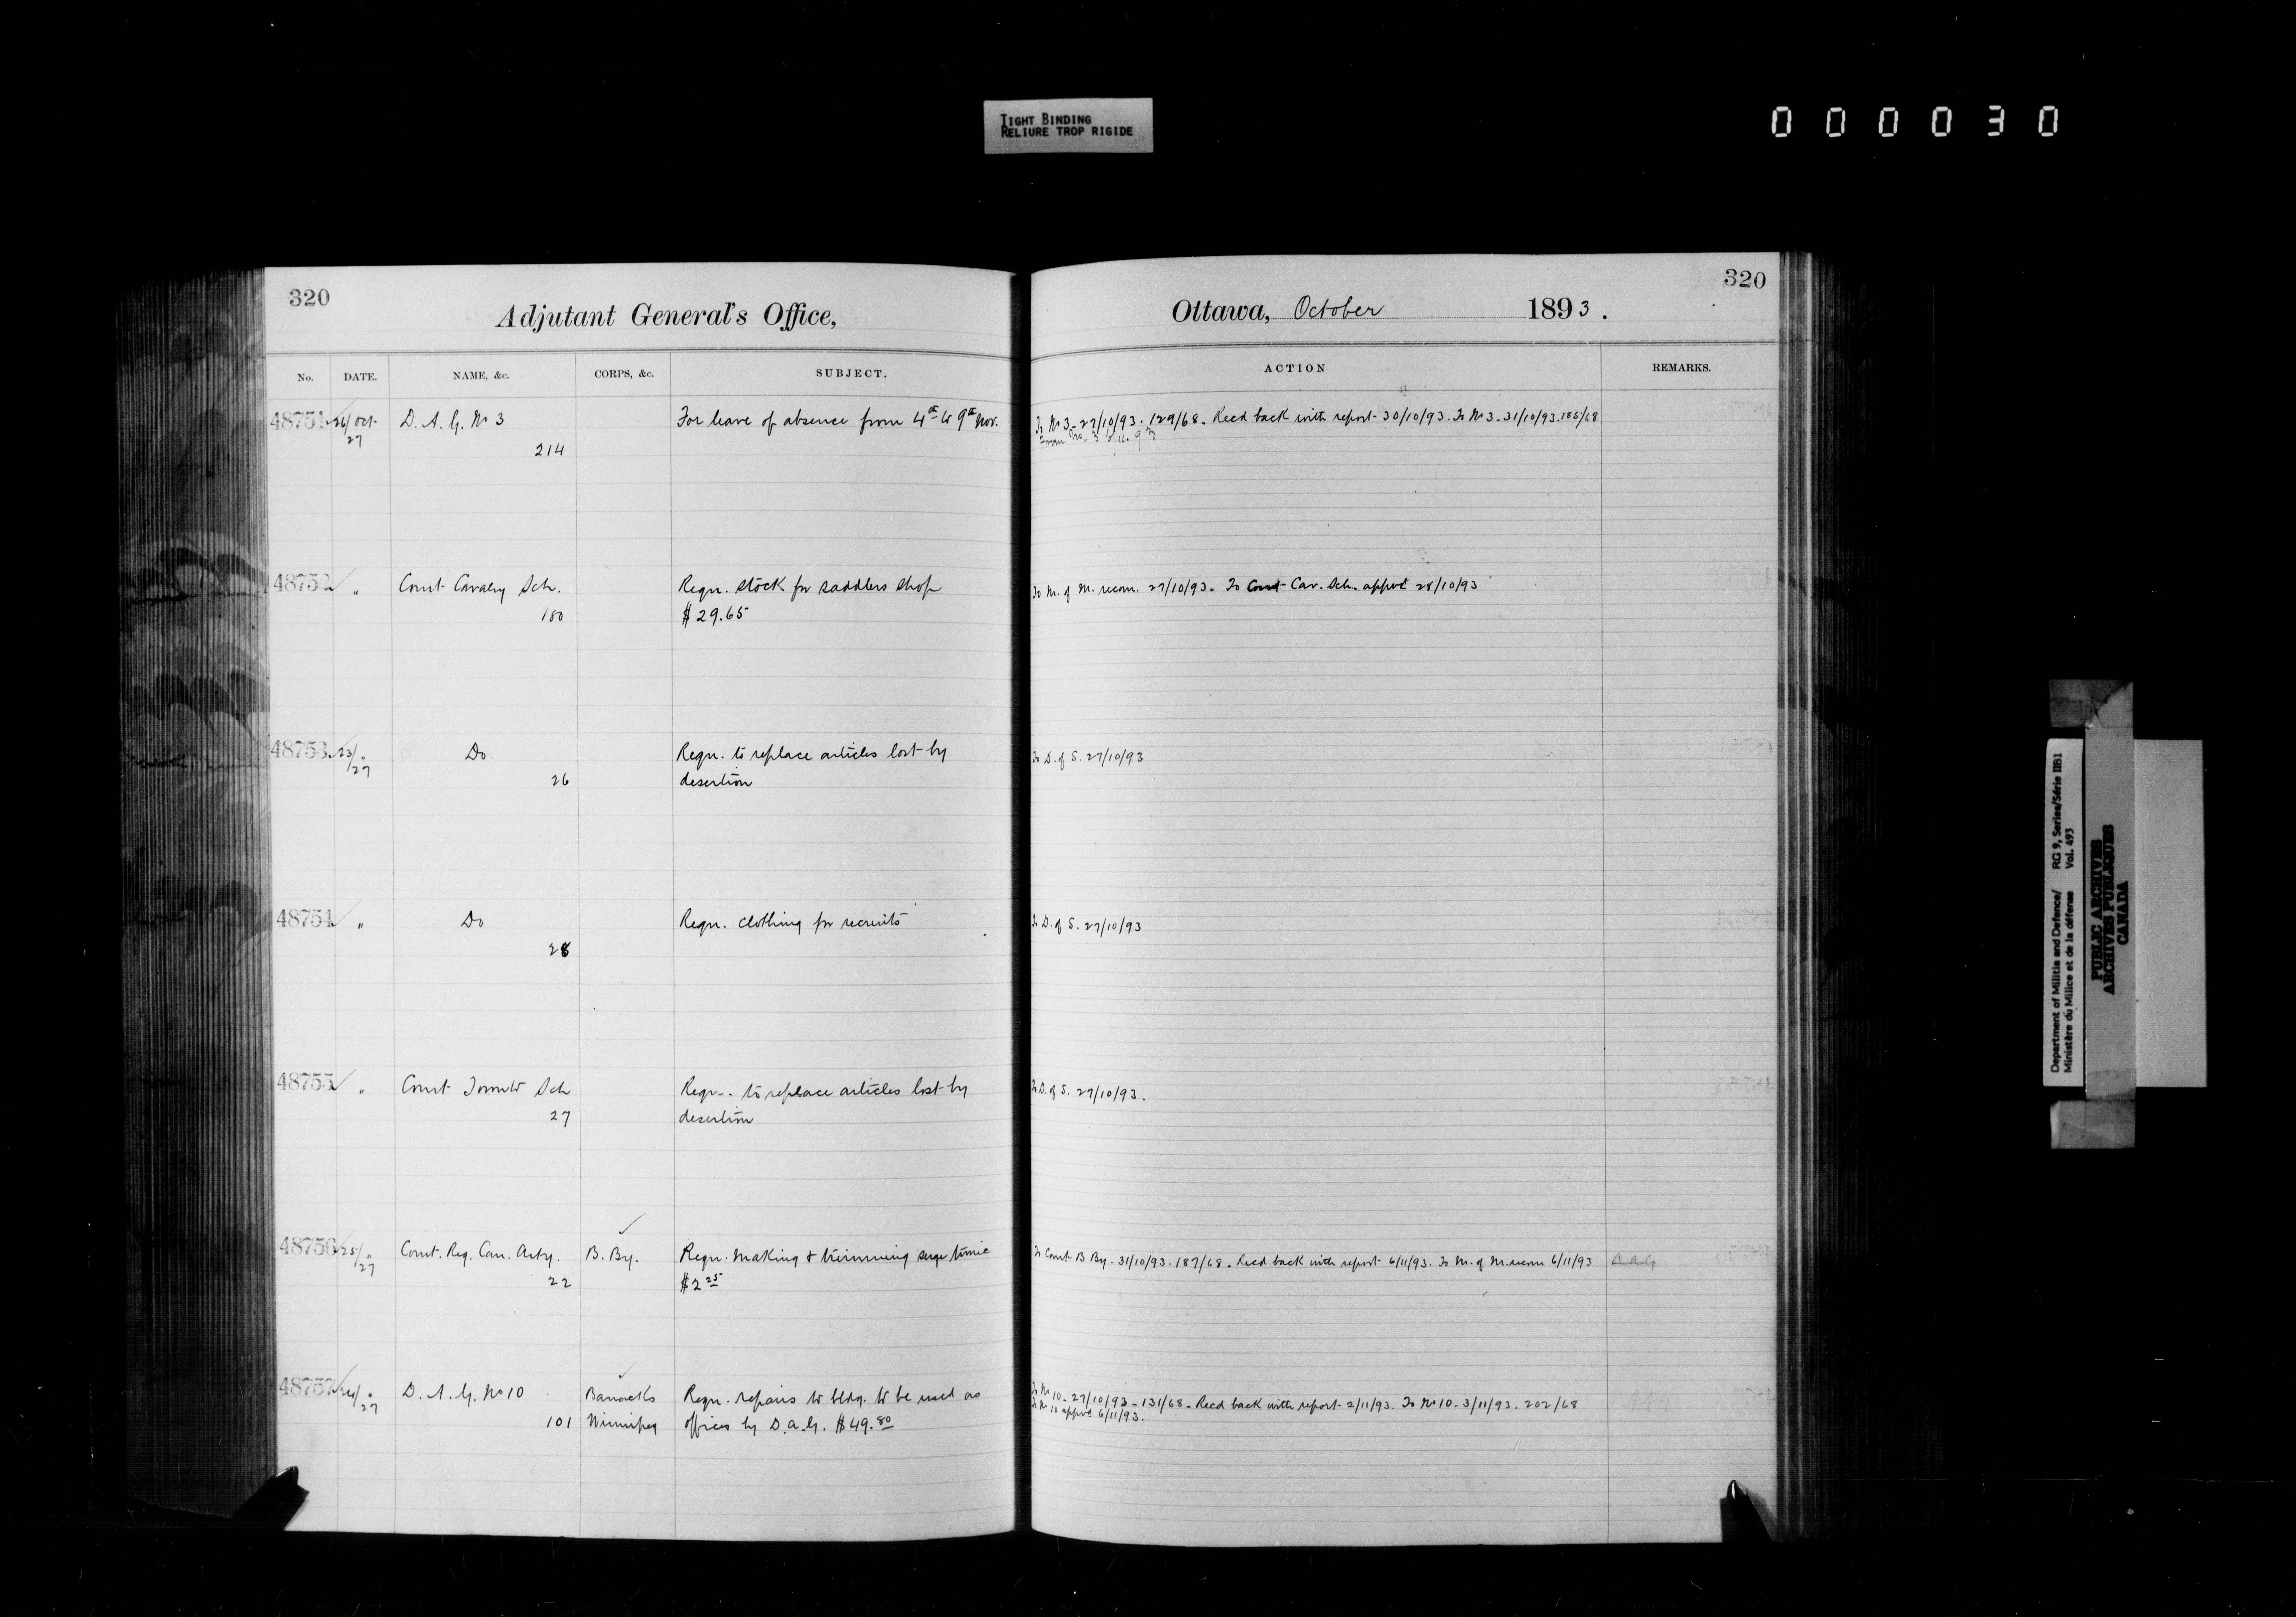 TIGHT BINDING
RELIURE TROP RIGIDE
000030
320
Adjutant General's Office,
No. DATE. NAME, &c. CORPS, &c. SUBJECT.
48751 26/Oct. 27 D. A. G. No 3 For leave of absence from 4th to 9th Nov.
214
48752 " Comt Cavalry Sch. Reqn. stock for saddlers shop
180 $29.65
48753 23/" 27 Do Reqn. to replace articles lost by
26 desertion
48754 " Do Reqn. clothing for recruits
28
48755 " Comt Toronto Sch Reqn. to replace articles lost by
27 desertion
48756 25/" 27 Comt. Reg. Can. Arty. B. By. Reqn. making & trimming serge tunic
22 $2.25
48757 24/" 27 D. A. G. No 10 Barracks Reqn. repairs to bldg. to be used as
101 Winnipeg offices by D.A.G. $49.80
320
Ottawa, October 1893.
ACTION REMARKS.
To No 3 - 27/10/93. 129/68. Recd back with report 30/10/93. To No 3 - 31/10/93. 185/68
From No. 3
To M. of M. recom. 27/10/93. To Comt Car. Sch. appvd 28/10/93
To D. of S. 27/10/93
To D. of S. 27/10/93
To D. of S. 27/10/93.
To Comt B By - 31/10/93. 187/68. Recd back with report 6/11/93. To M. of M. recom 6/11/93 A.A.G
To No 10 - 27/10/93 - 131/68 - Recd back with report 2/11/93. To No 10 - 3/11/93. 202/68
To No 10 appvd 6/11/93.
Department of Militia and Defence/ RG 9, Series/Série IIB1
Ministère du Milice et de la défense Vol. 493
PUBLIC ARCHIVES
ARCHIVES PUBLIQUES
CANADA